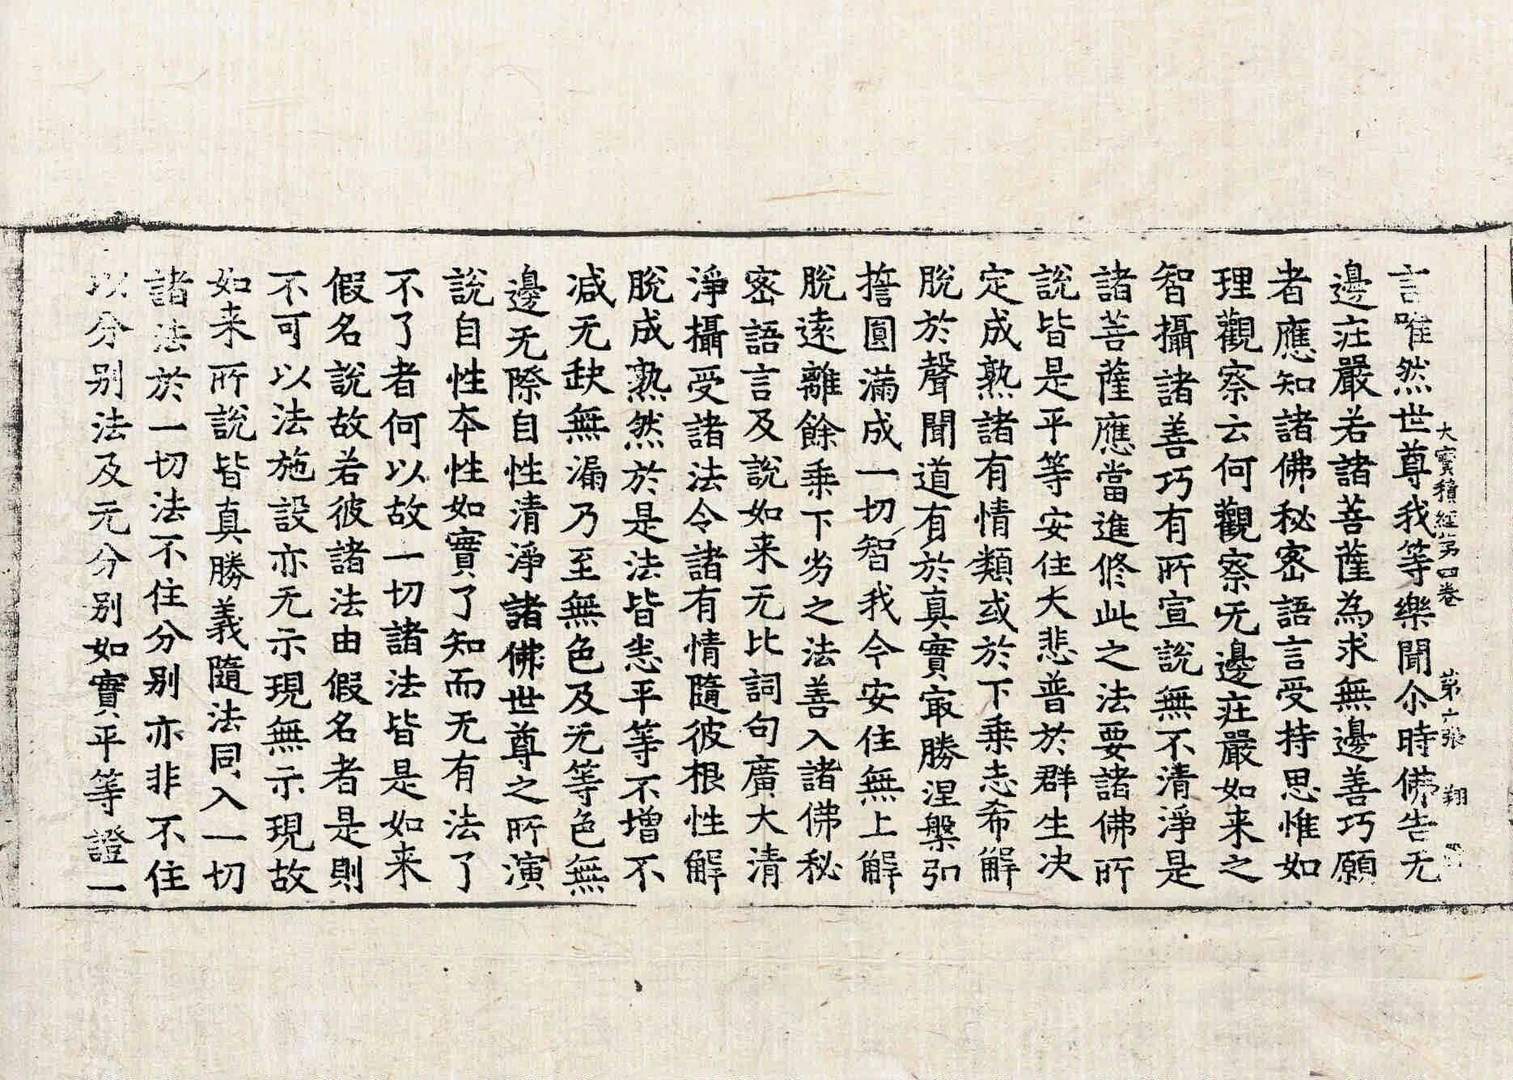 大寶積經第四卷 第六張 翔
言唯然世尊我等樂聞尒時佛告无
邊莊嚴若諸菩薩為求無邊善巧願
者應知諸佛秘密語言受持思惟如
理觀察云何觀察无邊莊嚴如来之
智攝諸善巧有所宣說無不清淨是
諸菩薩應當進修此之法要諸佛所
說皆是平等安住大悲普於群生决
定成熟諸有情類或於下乗志希解
脫於聲聞道有於真實㝡勝涅槃弘
誓圓滿成一切智我今安住無上解
脫遠離餘乗下劣之法善入諸佛秘
密語言及說如来无比詞句廣大清
淨攝受諸法令諸有情隨彼根性解
脫成熟然於是法皆悉平等不增不
减无缺無漏乃至無色及无等色無
邊无際自性清淨諸佛世尊之所演
說自性夲性如實了知而无有法了
不了者何以故一切諸法皆是如来
假名說故若彼諸法由假名者是則
不可以法施設亦无示現無示現故
如来所說皆真勝義隨法同入一切
諸法於一切法不住分別亦非不住
以分別法及无分別如實平等證一